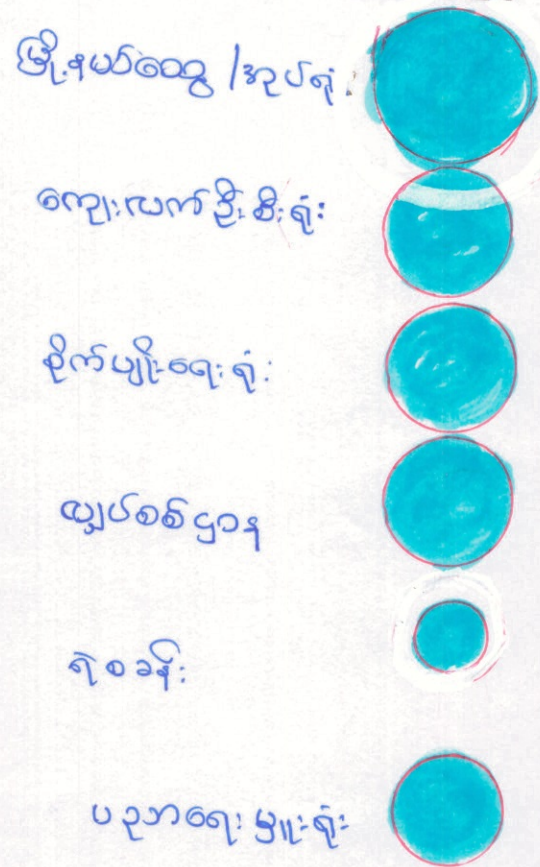 မြို့နယ်ထွေ/အုပ်ရုံး
ကျေးလက်ဦးစီးရုံး
စိုက်ပျိုးရေးရုံး
လျှပ်စစ်ဌာန
ရဲစခန်း
ပညာရေးမှူးရုံး